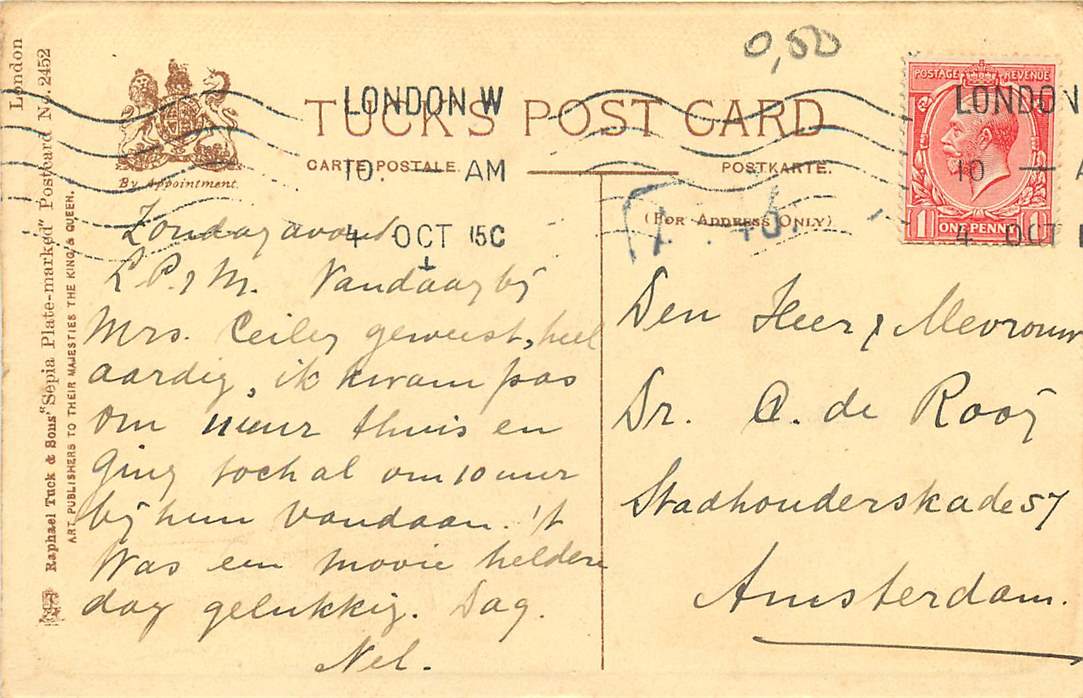 London
Raphael Tuck & Sons' "Sepia Plate-marked" Postcard No. 2452
ART PUBLISHERS TO THEIR MAJESTIES THE KING & QUEEN.
By Appointment.
0,50
TUCK'S POST CARD
CARTE POSTALE.
POSTKARTE.
(FOR ADDRESS ONLY)
LONDON W
10. — AM
4 OCT 15C
POSTAGE REVENUE
1 ONE PENNY 1
LONDON
10 — A
4 OCT
Zondagavond
L P. & M. Vandaag bij
Mrs. Ceiley geweest, heel
aardig, ik kwam pas
om uur thuis en
ging toch al om 10 uur
bij hun vandaan. 't
Was een mooie heldere
dag gelukkig. Dag.
Nel.
Den Heer & Mevrouw
Dr. C. de Rooij
Stadhouderskade 57
Amsterdam.